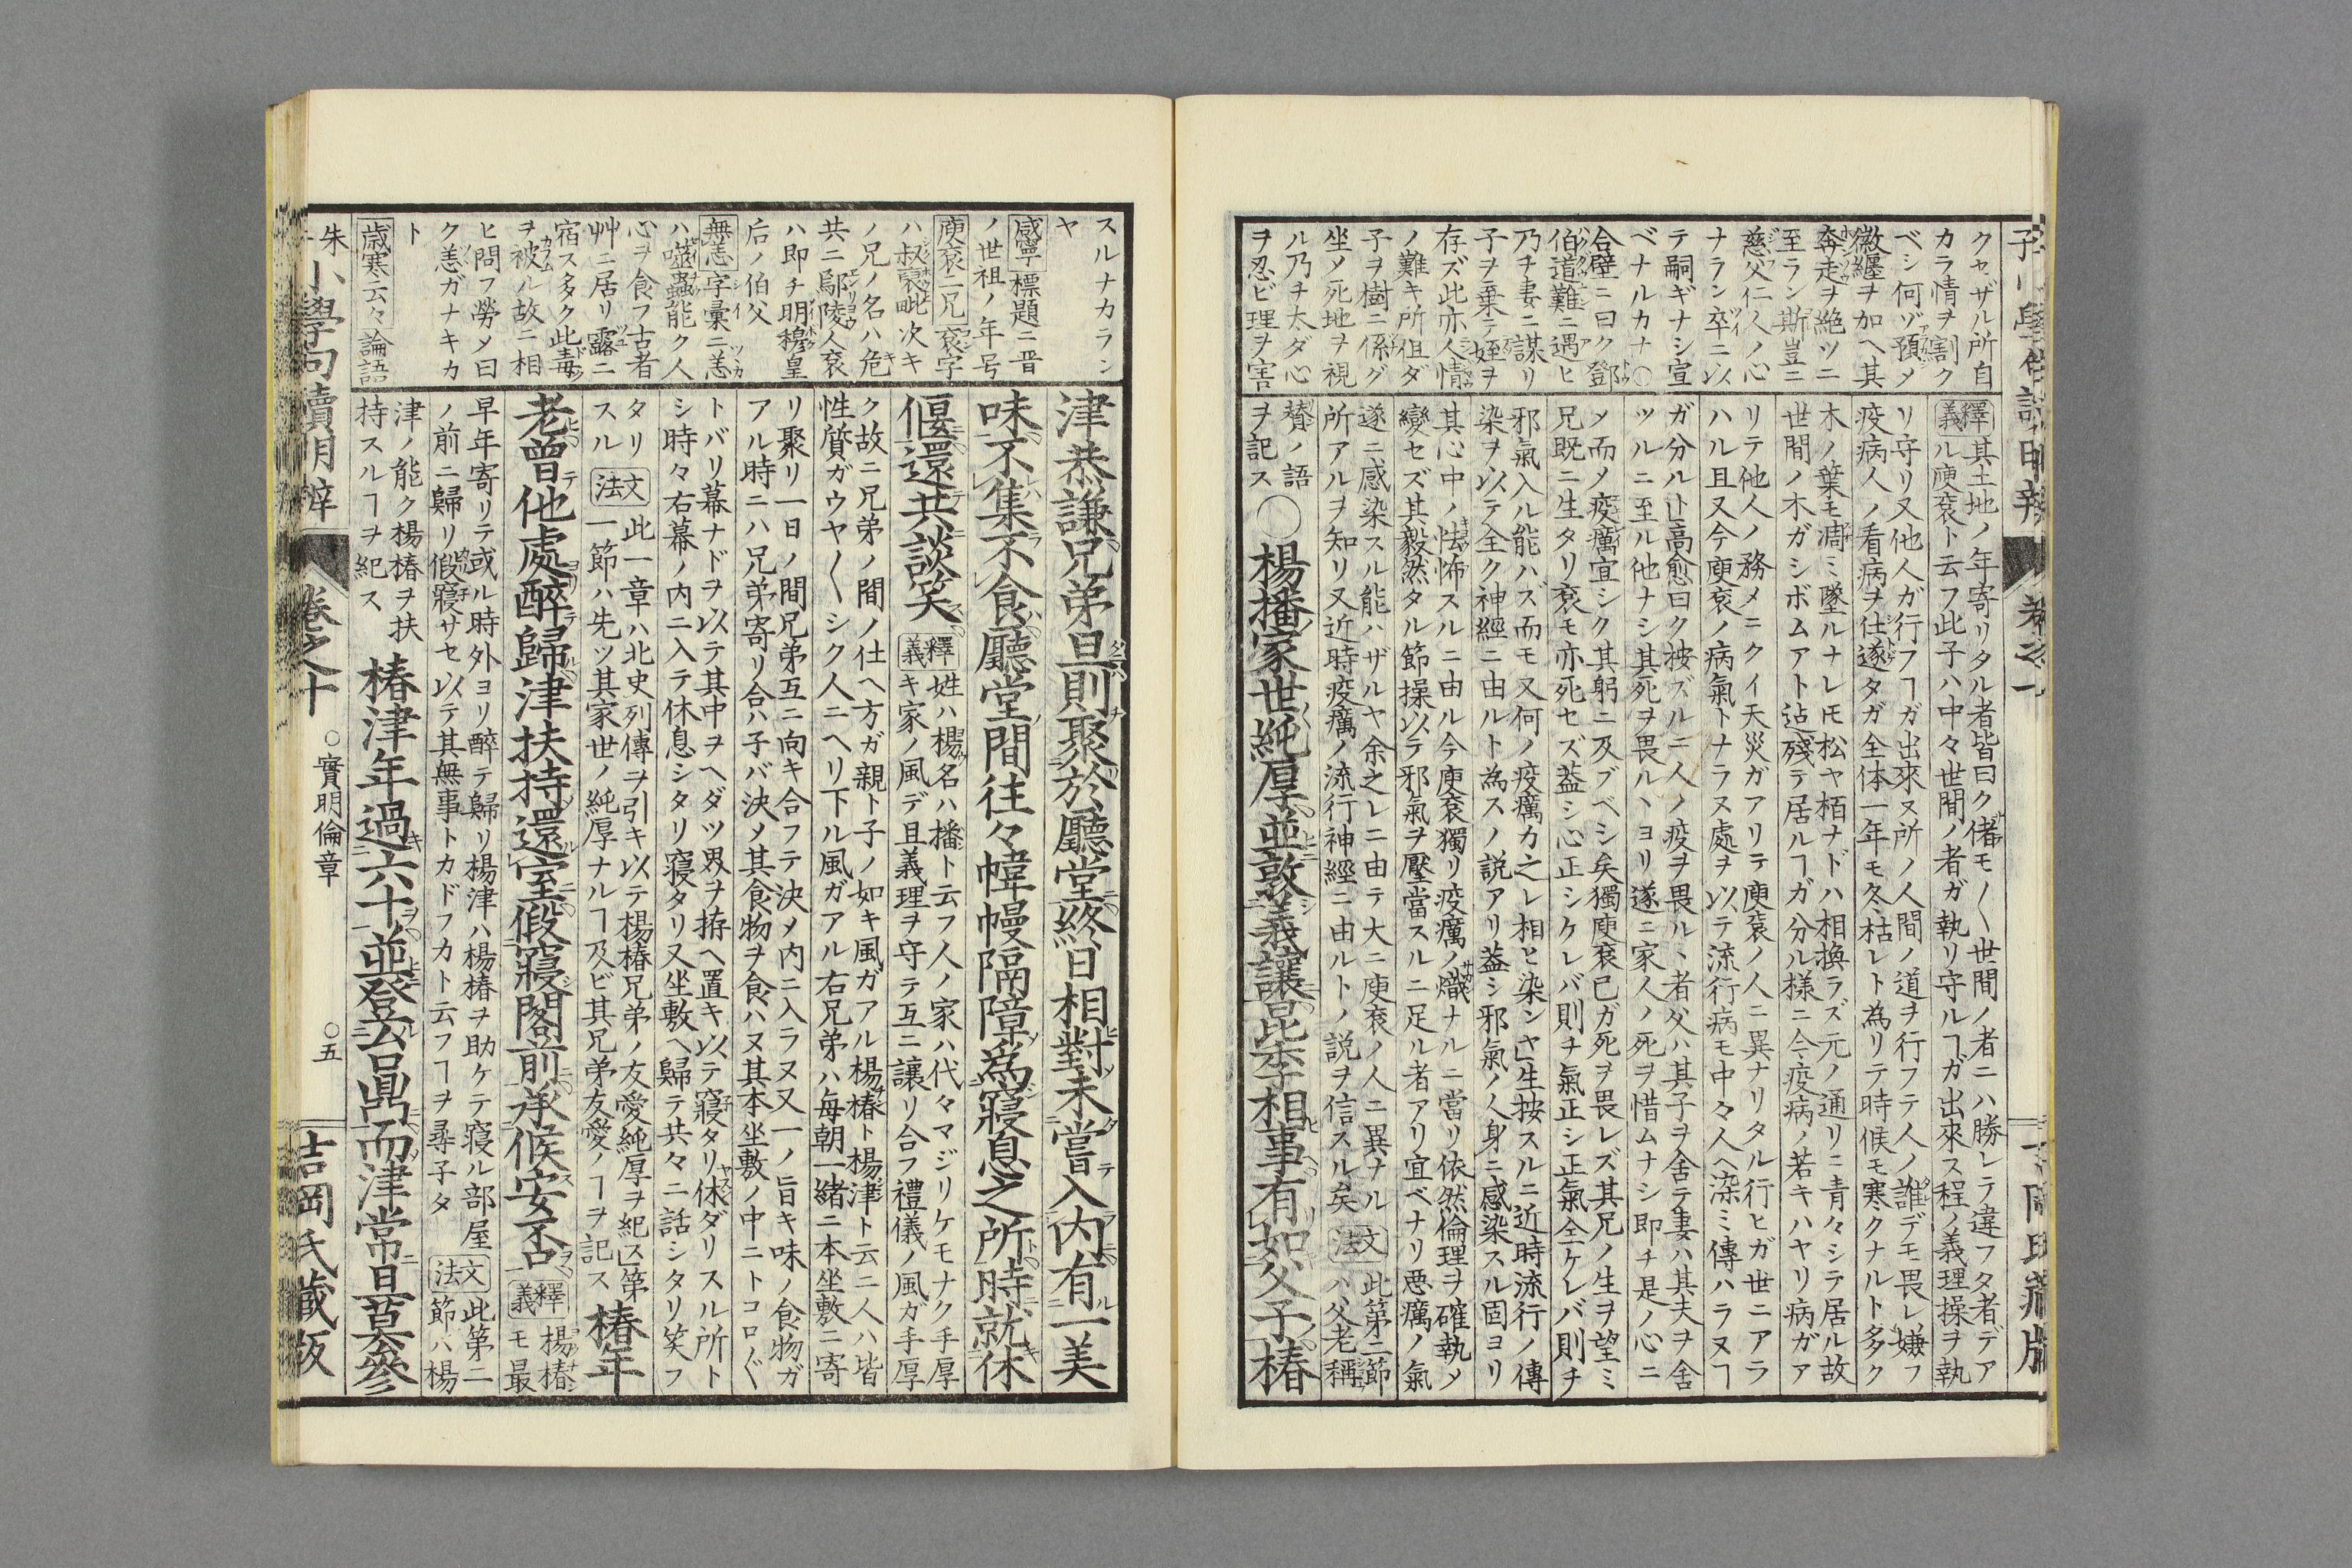 クセザル所自
カラ情ヲ割ク
ベシ何ゾ預メ
徽纆ヲ加ヘ其
奔走ヲ絶ツニ
至ラン斯豈ニ
慈父仁人ノ心
ナラン卒ニ以
テ嗣ギナシ宣
ベナルカナ○
合壁ニ曰ク鄧
伯道難ニ遇ヒ
乃チ妻ニ謀リ
子ヲ棄テ姪ヲ
存ズ此亦人情
ノ難キ所但ダ
子ヲ樹ニ係グ
坐ノ死地ヲ視
ル乃ヲ太ダ心
ヲ忍ビ理ヲ害
釋義 其土地ノ年寄リタル者皆曰ク偖モ〱世間ノ者ニハ勝レテ違フタ者デア
ル庾袞ト云フ此子ハ中々世間ノ者ガ執リ守ルヿガ出來ス程ノ義理操ヲ執
リ守リ又他人ガ行フヿガ出來ヌ所ノ人間ノ道ヲ行フテ人ノ誰デモ畏レ嫌フ
疫病人ノ看病ヲ仕遂タガ全体一年モ冬枯レト為リテ時候モ寒クナルト多ク
木ノ葉モ凋ミ墜ルナレ𪜈松ヤ栢ナドハ相換ラズ元ノ通リニ青々シテ居ル故
世間ノ木ガシボムアト迠殘テ居ルヿガ分ル様ニ今疫病ノ若キハヤリ病ガア
リテ他人ノ務メニクイ天災ガアリテ庾袞ノ人ニ異ナリタル行ヒガ世ニアラ
ハル且又今庾袞ノ病氣トナラヌ處ヲ以テ流行病モ中々人ヘ染ミ傳ハラヌヿ
ガ分ル ト」高愈曰ク按ズルニ人ノ疫ヲ畏ルヽ者父ハ其子ヲ舍テ妻ハ其夫ヲ舍
ツルニ至ル他ナシ其死ヲ畏ルヽヨリ遂ニ家人ノ死ヲ惜ムナシ即チ是ノ心ニ
メ而メ疫癘宜シク其躬ニ及ブベシ矣獨庾袞已ガ死ヲ畏レズ其兄ノ生ヲ望ミ
兄既ニ生タリ袞モ亦死セズ葢シ心正シケレバ則チ氣正シ正氣全ケレバ則チ
邪氣入ル能ハズ而モ又何ノ疫癘カ之レ相ヒ染ンヤ」生按スルニ近時流行ノ傳
染ヲ以テ全ク神經ニ由ルト為スノ説アリ葢シ邪氣ノ人身ニ感染スル固ヨリ
其心中ノ怯怖スルニ由ル今庾袞獨リ疫癘ノ熾ナルニ當リ依然倫理ヲ確執メ
變セズ其毅然タル節操以テ邪氣ヲ壓當スルニ足ル者アリ宜ベナリ悪癘ノ氣
遂ニ感染スル能ハザルヤ余之レニ由テ大ニ庾袞ノ人ニ異ナル
所アルヲ知リ又近時疫癘ノ流行神經ニ由ルトノ説ヲ信スル矣 文法 此第二節
ハ父老稱
賛ノ語
ヲ記ス
○楊播家世純厚並敦義讓昆季相事有如父子椿
スルナカラン
ヤ
咸寧 標題ニ晋
ノ世祖ノ年号
庾袞二兄 袞字
ハ叔裦毗次キ
ノ兄ノ名ハ危
共ニ鄢陵人袞
ハ即チ明穆皇
后ノ伯父
無恙 字彙ニ恙
ハ噬蟲能ク人
心ヲ食フ古者
艸ニ居リ露ニ
宿ス多ク此毒
ヲ被ル故ニ相
ヒ問フ勞メ曰
ク恙ガナキカ
ト
歳寒云々 論語
津恭謙兄弟旦則聚於廳堂終日相對未嘗入内有一美
味不集不食廳堂間往々幃幔隔障為寢息之所時就休
偃還共談笑
釋義 姓ハ楊名ハ播ト云フ人ノ家ハ代々マジリケモナク手厚
キ家ノ風デ且義理ヲ守テ互ニ讓リ合フ禮儀ノ風ガ手厚
ク故ニ兄弟ノ間ノ仕ヘ方ガ親ト子ノ如キ風ガアル楊椿ト楊津ト云二人ハ皆
性質ガウヤ〱シク人ニヘリ下ル風ガアル右兄弟ハ毎朝一緒ニ本坐敷ニ寄
リ聚リ一日ノ間兄弟互ニ向キ合フテ決メ内ニ入ラヌ又一ノ旨キ味ノ食物ガ
アル時ニハ兄弟寄リ合ハ子バ決メ其食物ヲ食ハヌ其本坐敷ノ中ニトコロ〲
トバリ幕ナドヲ以テ其中ヲヘダツ界ヲ拵ヘ置キ以テ寢タリ休ダリスル所ト
シ時々右幕ノ内ニ入テ休息シタリ寢タリ又坐敷ヘ歸テ共々ニ話シタリ笑フ
タリ
スル
文法 此一章ハ北史列傳ヲ引キ以テ楊椿兄弟ノ友愛純厚ヲ紀ス」第
一節ハ先ツ其家世ノ純厚ナルヿ及ビ其兄弟友愛ノヿヲ記ス
椿年
老曽他處醉歸津扶持還室假寢閤前承候安否
釋義 楊椿
モ最
早年寄リテ或ル時外ヨリ醉テ歸リ楊津ハ楊椿ヲ助ケテ寢ル部屋
ノ前ニ歸リ假寢サセ以テ其無事トカドフカト云フヿヲ尋子タ
文法 此第二
節ハ楊
津ノ能ク楊椿ヲ扶
持スルヿヲ紀ス
椿津年過六十並登台鼎而津常旦莫參
小學句讀明辨 卷之十 ○實明倫章 ○五 吉岡氏藏版